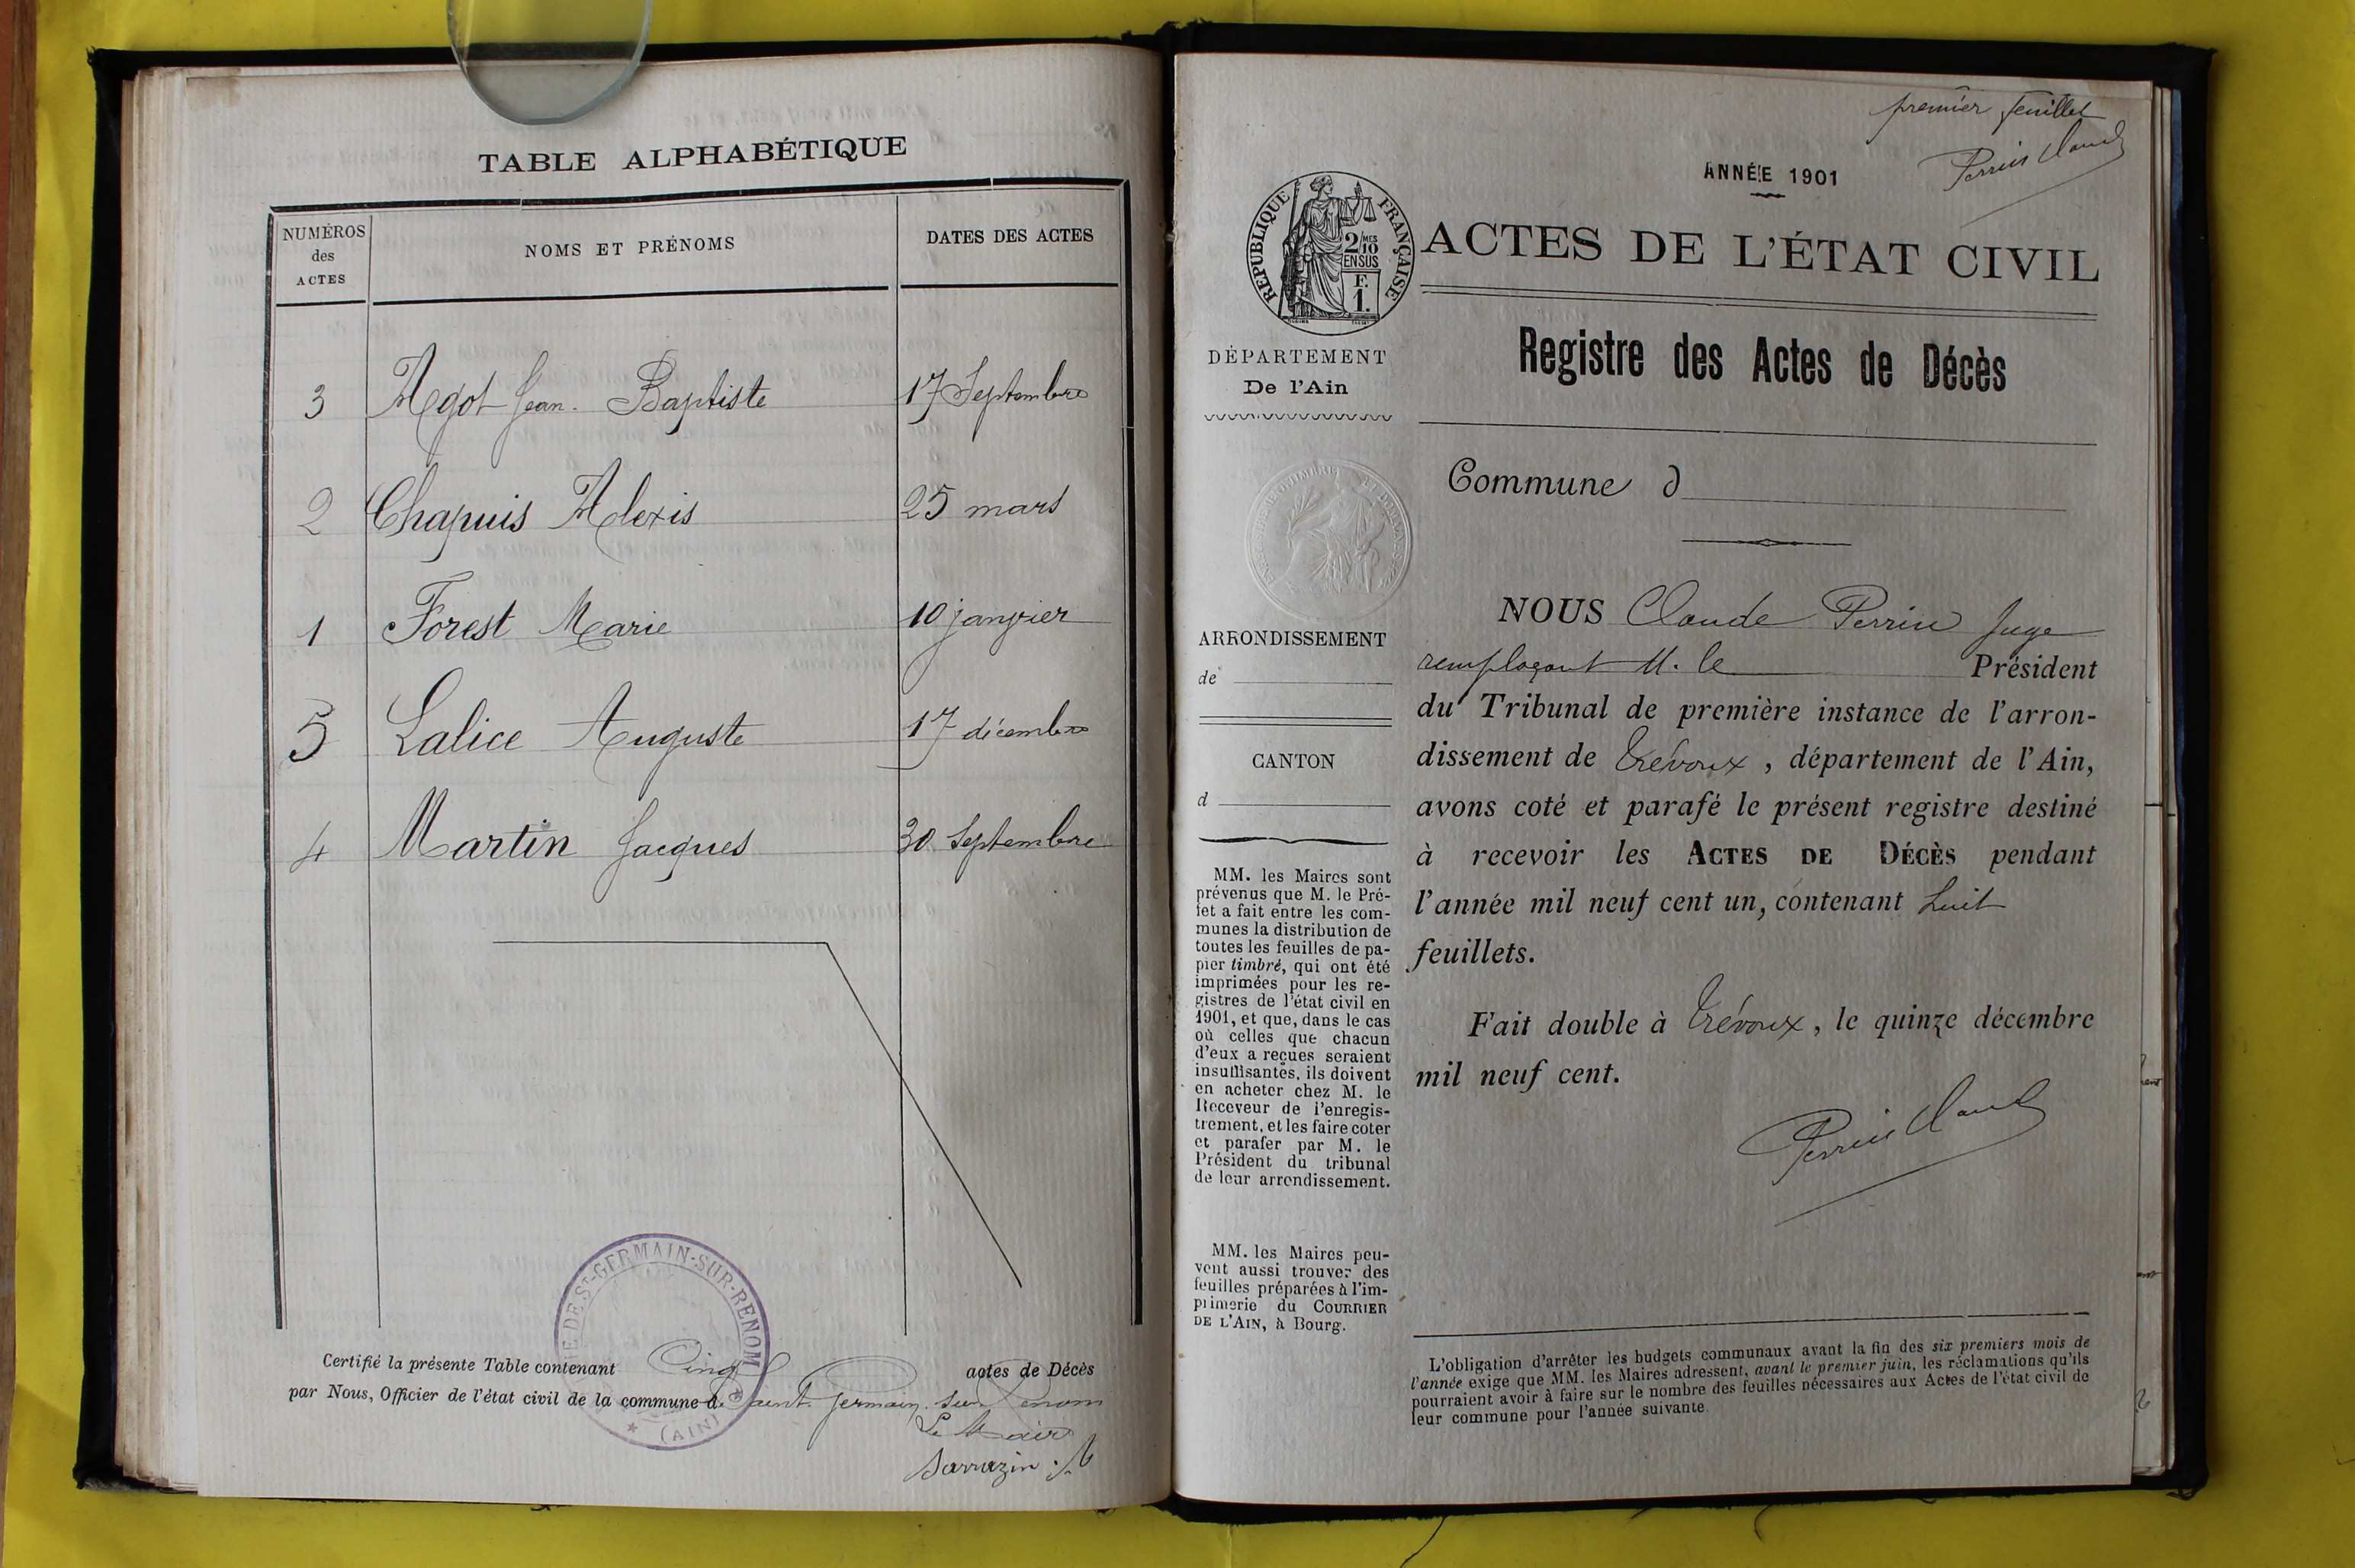 TABLE ALPHABÉTIQUE
NUMÉROS
des
ACTES
NOMS ET PRÉNOMS
DATES DES ACTES
3 Agot Jean-Baptiste 17 Septembre
2 Chapuis Alexis 25 mars
1 Forest Marie 10 janvier
5 Lalice Auguste 17 décembre
4 Martin Jacques 30 Septembre
Certifié la présente Table contenant Cinq actes de Décès
par Nous, Officier de l'état civil de la commune d. Saint Germain sur Renom
Le Maire
Sarrazin
DE ST-GERMAIN-SUR-RENOM
(AIN)
premier feuillet
Perrin Claude
ANNÉE 1901
RÉPUBLIQUE FRANÇAISE
2/MES
10
EN SUS
F.
1.
ACTES DE L'ÉTAT CIVIL
DÉPARTEMENT
De l'Ain
Registre des Actes de Décès
Commune d
ARRONDISSEMENT
de
CANTON
d
MM. les Maires sont
prévenus que M. le Pré-
fet a fait entre les com-
munes la distribution de
toutes les feuilles de pa-
pier timbré, qui ont été
imprimées pour les re-
gistres de l'état civil en
1901, et que, dans le cas
où celles que chacun
d'eux a reçues seraient
insuffisantes, ils doivent
en acheter chez M. le
Receveur de l'enregis-
trement, et les faire coter
et parafer par M. le
Président du tribunal
de leur arrondissement.
MM. les Maires peu-
vent aussi trouver des
feuilles préparées à l'im-
primerie du COURRIER
DE L'AIN, à Bourg.
NOUS Claude Perrin Juge
remplaçant M. le Président
du Tribunal de première instance de l'arron-
dissement de Trévoux, département de l'Ain,
avons coté et parafé le présent registre destiné
à recevoir les ACTES DE DÉCÈS pendant
l'année mil neuf cent un, contenant huit
feuillets.
Fait double à Trévoux, le quinze décembre
mil neuf cent.
Perrin Claude
L'obligation d'arrêter les budgets communaux avant la fin des six premiers mois de
l'année exige que MM. les Maires adressent, avant le premier juin, les réclamations qu'ils
pourraient avoir à faire sur le nombre des feuilles nécessaires aux Actes de l'état civil de
leur commune pour l'année suivante